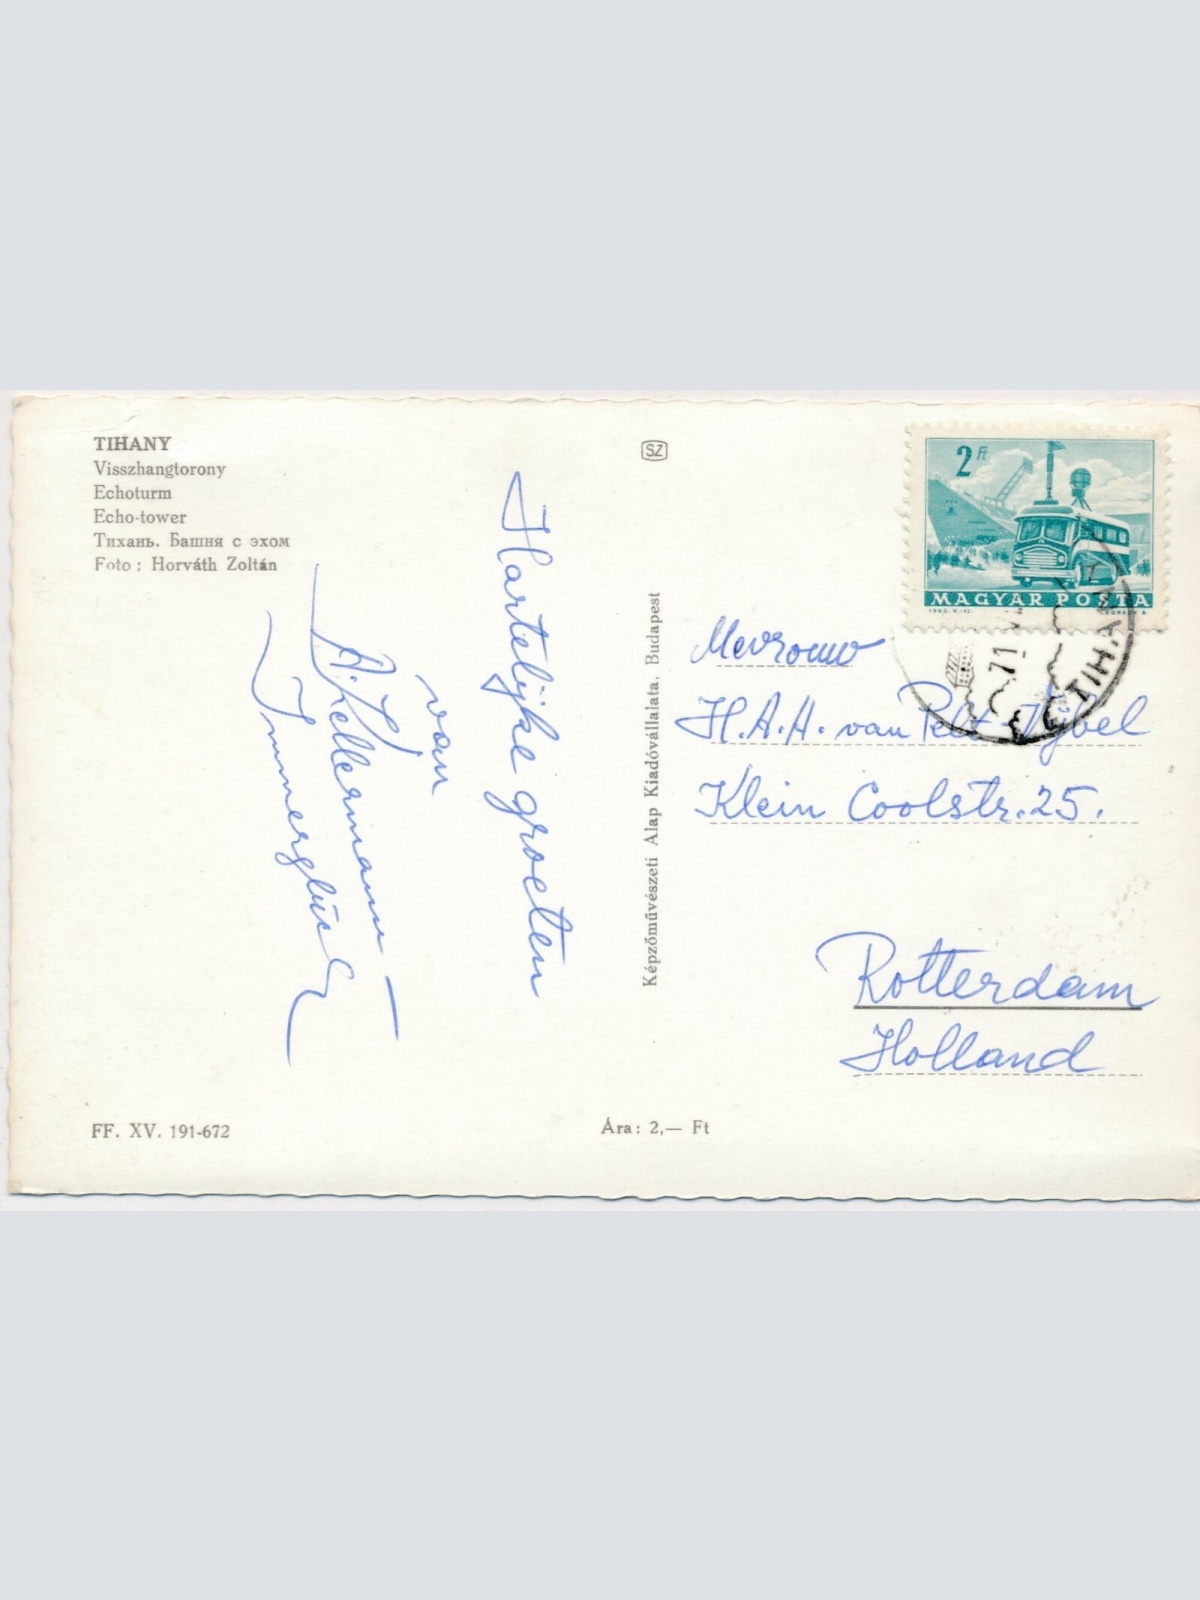 TIHANY
Visszhangtorony
Echoturm
Echo-tower
Тихань. Башня с эхом
Foto : Horváth Zoltán
SZ
2 Ft
MAGYAR POSTA
1963.V.-12.
TIHANY
71
Hartelijke groeten
van
A. Kellermann –
Képzőművészeti Alap Kiadóvállalata, Budapest
Mevrouw
H.A.H. van Pelt
Klein Coolstr. 25.
Rotterdam
Holland
FF. XV. 191-672
Ára: 2,— Ft